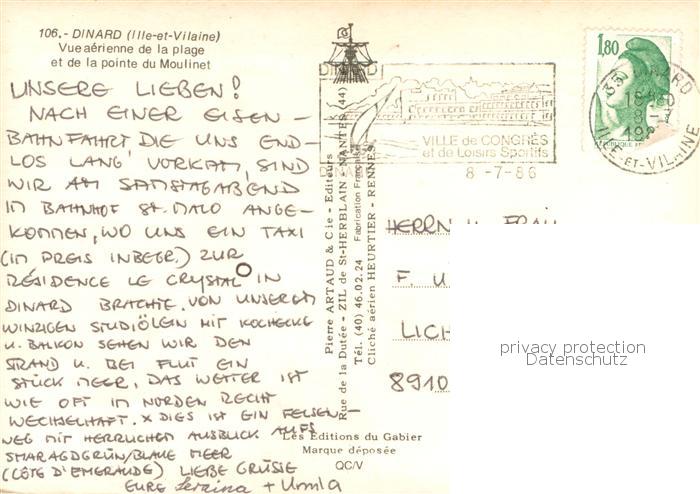 106.- DINARD (Ille-et-Vilaine)
Vue aérienne de la plage
et de la pointe du Moulinet
UNSERE LIEBEN!
NACH EINER EISEN-
BAHNFAHRT DIE UNS END-
LOS LANG VORKAM, SIND
WIR AM SAMSTAGABEND
IM BAHNHOF ST. MALO ANGE-
KOMMEN, WO UNS EIN TAXI
(IM PREIS INBEGR.) ZUR
RÉSIDENCE LE CRYSTAL IN
DINARD BRACHTE. VON UNSEREM
WINZIGEN STUDIÖLEIN MIT KOCHECKE
U. BALKON SEHEN WIR DEN
STRAND U. BEI FLUT EIN
STÜCK MEER, DAS WETTER IST
WIE OFT IM NORDEN RECHT
WECHSELHAFT. X DIES IST EIN FELSEN-
WEG MIT HERRLICHEM AUSBLICK AUFS
SMARAGDGRÜN/BLAUE MEER
(CÔTE D'EMERAUDE) LIEBE GRÜSSE
EURE + Ursula
Pierre ARTAUD & Cie - Editeurs
Rue de la Dutée - ZIL de St-HERBLAIN - NANTES (44)
Tél. (40) 46.02.24 Fabrication Française
Cliché aérien HEURTIER - RENNES
Les Editions du Gabier
Marque déposée
QC/V
DINARD
VILLE de CONGRÈS
et de Loisirs Sportifs
DINARD
8-7-86
1,80
35 DINARD
18H
8-7
ILLE-ET-VILAINE
HERRN U. FRAU
F. U
LICH
8910
privacy protection
Datenschutz